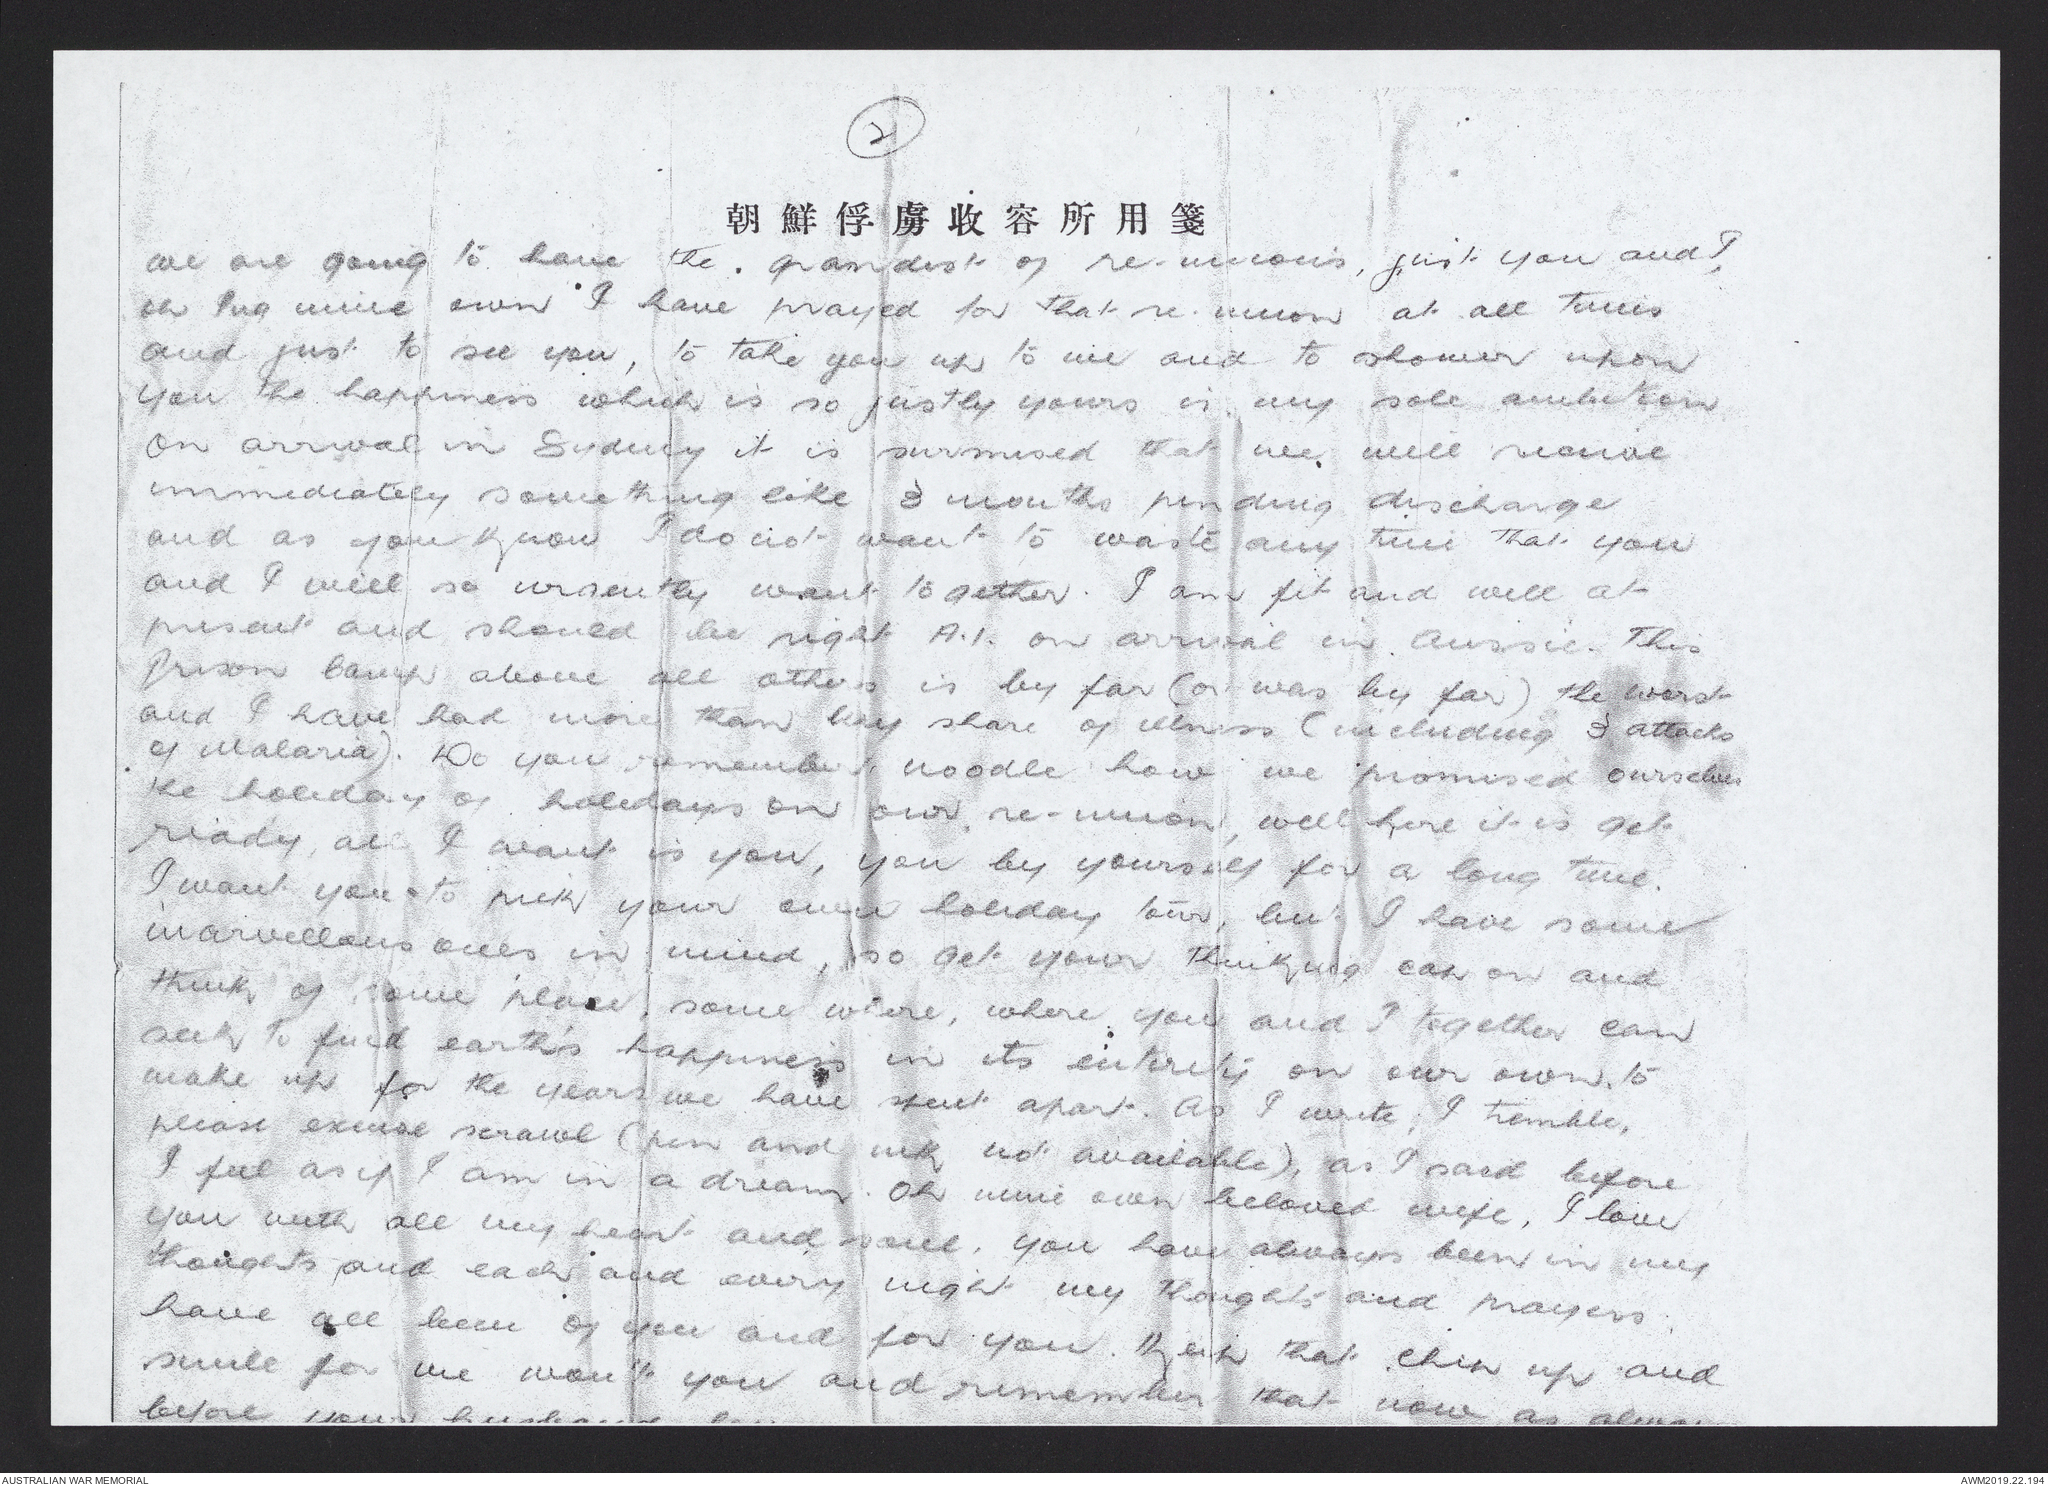 2
朝鮮俘虜收容所用箋
we are going to have the grandest of re-unions, just you and I,
oh Pug mine own I have prayed for that re-union at all times
and just to see you, to take you up to me and to shower upon
you the happiness which is so justly yours is my sole ambition
On arrival in Sydney it is surmised that we will receive
immediately something like 3 months pending discharge
and as you know I do not want to waste any time that you
and I will so urgently want together. I am fit and well at
present and should be right A.1. on arrival in Aussie. This
Prison Camp above all others is by far (or was by far) the worst
and I have had more than my share of illness (including 3 attacks
of Malaria). Do you remember noodle how we promised ourselves
the holiday of holidays on our re-union, well here it is get
ready, all I want is you, you by yourself for a long time.
I want you to pick your own holiday tour, but I have some
marvellous ones in mind, so get your thinking cap on and
think of some place, some where, where you and I together can
seek to find earth's happiness in its entirety on our own, to
make up for the years we have spent apart. As I write, I tremble,
please excuse scrawl (pen and ink not available), as I said before
I feel as if I am in a dream. Oh mine own beloved wife, I love
you with all my heart and soul, you have always been in my
thoughts and each and every night my thoughts and prayers
have all been of you and for you. Keep that chin up and
smile for me won't you and remember that now as always
before your husband
AUSTRALIAN WAR MEMORIAL
AWM2019.22.194